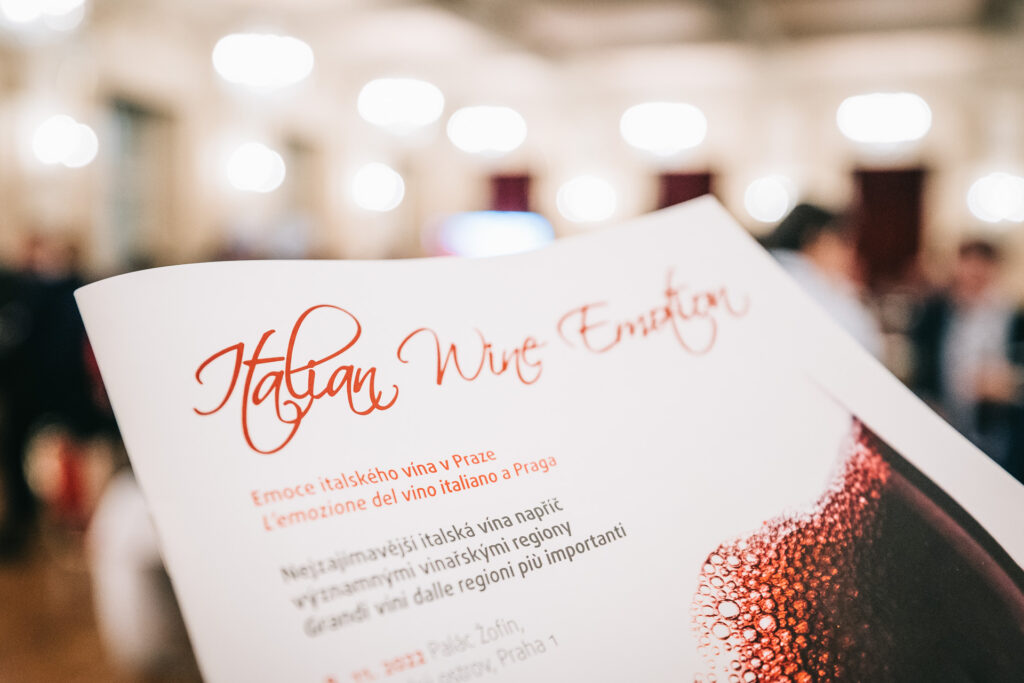 Italian Wine Emotion
Emoce italského vína v Praze
L'emozione del vino italiano a Praga
Nejzajímavější italská vína napříč
významnými vinařskými regiony
Grandi vini dalle regioni più importanti
11. 2022 Palác Žofín,
ostrov, Praha 1